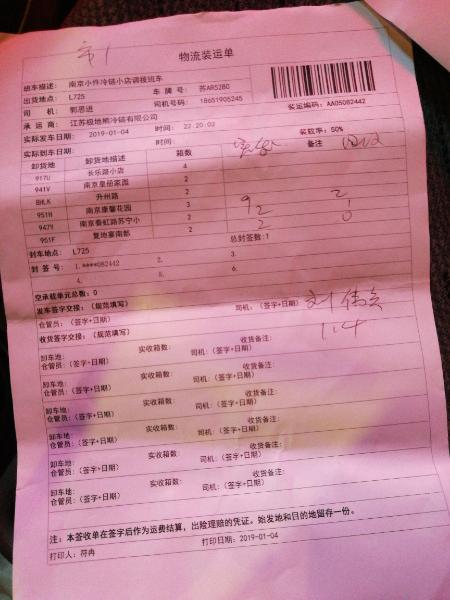 物流装运单
班车描述: 南京小件冷链小店调拨班车
出货地点: L725 车牌号: 苏AR5280
司机: 郭思进 司机号码: 18651905245
承运商: 江苏极地熊冷链有限公司 装运编码: AA05082442
实际发车日期: 2019-01-04 时间: 22:20:02 装载率: 50%
实际到车日期: 时间: 备注
卸货地 卸货地描述 箱数
917U 长乐路小店 4
941V 南京皇册家园 2
8HLK 升州路 2
951H 南京康馨花园 3 9 2
947Y 南京秦虹路苏宁小 2 2 0
951F 复地宴南都 2
封车地点: L725 总封签数:1
封签号: 1.****082442 2. 3.
4. 5. 6.
空承载单元总数: 0
发车签字交接: (规范填写)
仓管员: (签字+日期) 司机: (签字+日期) 刘伟
1.4
收货签字交接: (规范填写)
卸车地: 实收箱数: 收货备注:
仓管员: (签字+日期) 司机: (签字+日期)
卸车地: 实收箱数: 收货备注:
仓管员: (签字+日期) 司机: (签字+日期)
卸车地: 实收箱数: 收货备注:
仓管员: (签字+日期) 司机: (签字+日期)
卸车地 实收箱数: 收货备注:
仓管员: (签字+日期) 司机: (签字+日期)
卸车地: 实收箱数: 收货备注:
仓管员: (签字+日期) 司机: (签字+日期)
注: 本签收单在签字后作为运费结算, 出险理赔的凭证。始发地和目的地留存一份。
打印人: 符冉 打印日期: 2019-01-04